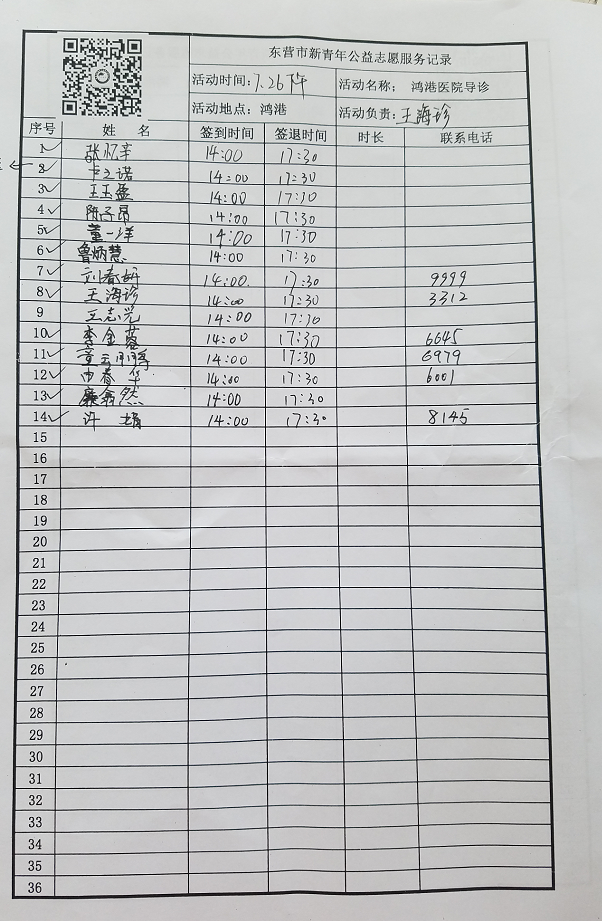 东营市新青年公益志愿服务记录
活动时间：7.26下午 活动名称： 鸿港医院导诊
活动地点：鸿港 活动负责：王海珍
序号 姓 名 签到时间 签退时间 时长 联系电话
1 14:00 17:30
2 14:00 17:30
3 王玉盈 14:00 17:30
4 陈子昂 14:00 17:30
5 董一洋 14:00 17:30
6 鲁炳慧 14:00 17:30
7 刘春妍 14:00 17:30 9999
8 王海珍 14:00 17:30 3312
9 王志光 14:00 17:30
10 李金蓉 14:00 17:30 6645
11 14:00 17:30 6979
12 由春华 14:00 17:30 6001
13 14:00 17:30
14 许娟 14:00 17:30 8145
15
16
17
18
19
20
21
22
23
24
25
26
27
28
29
30
31
32
33
34
35
36